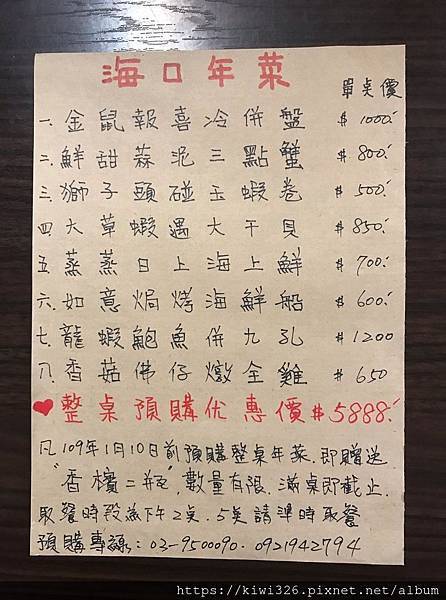 海口年菜
單点價
一. 金鼠報喜冷併盤 $1000.-
二. 鮮甜蒜泥三點蟹 $800.-
三. 獅子頭碰玉蝦卷 $500.-
四. 大草蝦遇大干貝 $850.-
五. 蒸蒸日上海上鮮 $700.-
六. 如意焗烤海鮮船 $600.-
七. 龍蝦鮑魚併九孔 $1200
八. 香菇佛仔燉全雞 $650
♥整桌預購优惠價$5888.-
凡109年1月10日前預購整桌年菜,即贈送
"香檳二瓶",數量有限.滿桌即截止.
取餐時段為下午2点.5点請準時取餐
預購專線: 03-9500090. 0921942794
https://kiwi326.pixnet.net/album